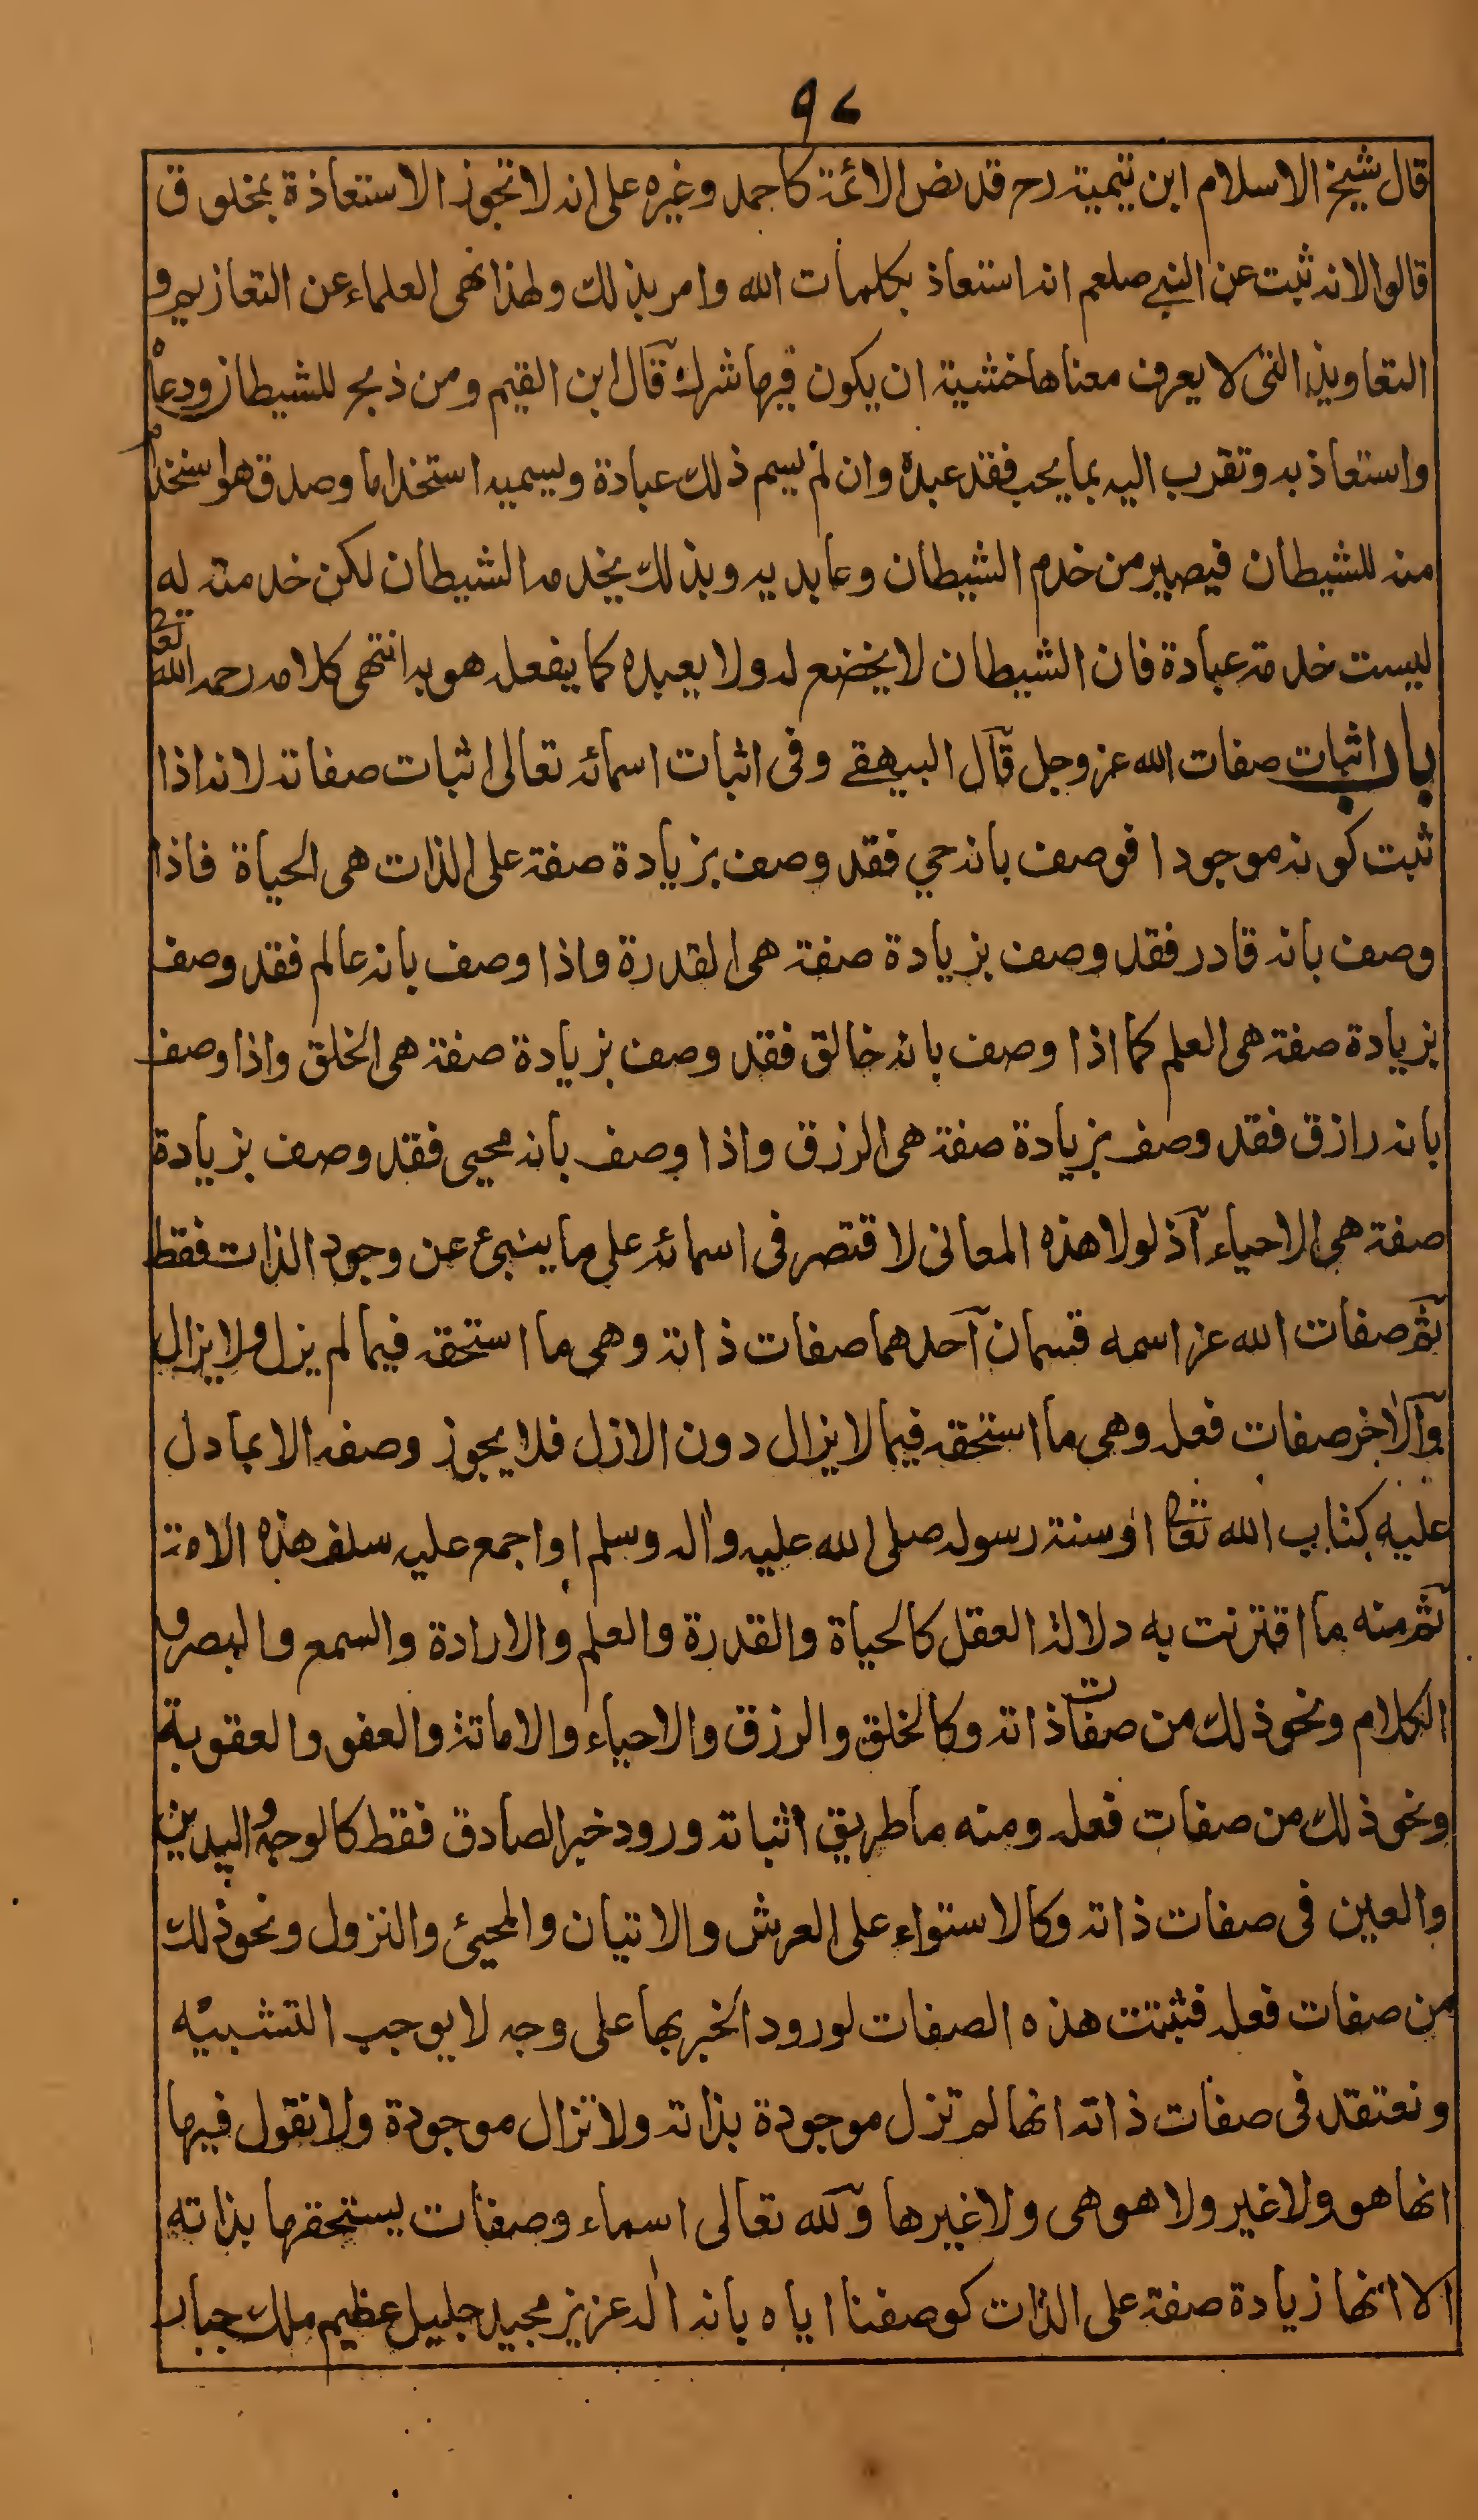 ٩٤
قال شيخ الاسلام ابن تيمية رح قد نص الائمة كاحمد وغيره على انه لا تجوز الاستعاذة بمخلوق
قالوا لانه ثبت عن النبي صلعم انه استعاذ بكلمات الله وامر بذلك ولهذا نهى العلماء عن التعازيم و
التعاويذ التى لا يعرف معناها خشية ان يكون فيها شرك قال ابن القيم ومن ذبح للشيطان ودعاه
واستعاذ به وتقرب اليه بما يحب فقد عبده وان لم يسم ذلك عبادة ويسميه استخداما وصدق هو استخدام
منه للشيطان فيصير من خدم الشيطان وعابديه وبذلك يخدمه الشيطان لكن خدمته له
ليست خدمة عبادة فان الشيطان لا يخضع له ولا يعبده كما يفعل هو به انتهى كلامه رحمه الله تعا
باب اثبات صفات الله عز وجل قال البيهقے وفى اثبات اسمائه تعالى اثبات صفاته لانه اذا
ثبت كونه موجودا فوصف بانه حي فقد وصف بزيادة صفة على الذات هى الحياة فاذا
وصف بانه قادر فقد وصف بزيادة صفة هى القدرة واذا وصف بانه عالم فقد وصف
بزيادة صفة هى العلم كما اذا وصف بانه خالق فقد وصف بزيادة صفة هى الخلق واذا وصف
بانه رازق فقد وصف بزيادة صفة هى الرزق واذا وصف بانه محيى فقد وصف بزيادة
صفة هى الاحياء اذ لولا هذه المعانى لاقتصر فى اسمائه على ما ينبئ عن وجود الذات فقط
ثم صفات الله عز اسمه قسمان احدهما صفات ذاته وهى ما استحقه فيما لم يزل ولا يزال
والاخر صفات فعله وهى ما استحقه فيما لا يزال دون الازل فلا يجوز وصفه الا بما دل
عليه كتاب الله تعا او سنة رسوله صلى الله عليه واله وسلم او اجمع عليه سلف هذه الامة
ثم منه ما اقترنت به دلالة العقل كالحياة والقدرة والعلم والارادة والسمع والبصر و
الكلام ونحو ذلك من صفات ذاته وكالخلق والرزق والاحياء والاماتة والعفو والعقوبة
ونحو ذلك من صفات فعله ومنه ما طريق اثباته ورود خبر الصادق فقط كالوجه واليدين
والعين فى صفات ذاته وكالاستواء على العرش والاتيان والمجيئ والنزول ونحو ذلك
من صفات فعله فثبتت هذه الصفات لورود الخبر بها على وجه لا يوجب التشبيه
ونعتقد فى صفات ذاته انها لم تزل موجودة بذاته ولا تزال موجودة ولا نقول فيها
انها هو ولا غير ولا هو هى ولا غيرها ولله تعالى اسماء وصفات يستحقها بذاته
الا انها زيادة صفة على الذات كوصفنا اياه بانه اله عزيز مجيد جليل عظيم ملك جبار